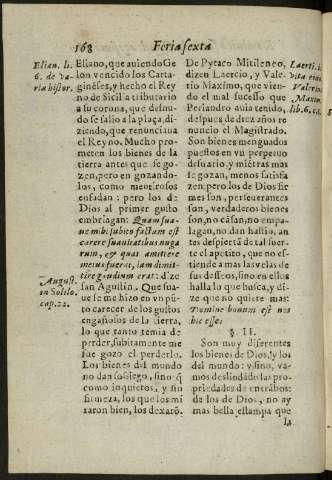 168
Feria sexta
Elian. li.
6. de va-
ria histor.
Eliano, que auiendo Ge
lon vencido los Carta-
gineses, y hecho el Rey
no de Sicilia tributario
a su corona, que desnu-
do se salio a la plaça, di-
ziendo, que renunciaua
el Reyno. Mucho pro-
meten los bienes de la
tierra antes que se go-
zen, pero en gozando-
los, como mentirosos
enfadan: pero los de
Dios al primer gusto
embriagan: Quam sua-
ue mihi subito factum est
carere suauitatibus nuga
rum, & quas amittere
metus fuerat, iam dimit-
tere gaudium erat: dize
san Agustin. Que sua-
ue se me hizo en vn pũ-
to carecer de los gustos
engañosos de la tierra,
lo que tanto temia de
perder, subitamente me
fue gozo el perderlo.
Los bienes del mundo
no dan sossiego, sino q̃
como inquietos, y sin
firmeza, los que los mi
raron bien, los dexarõ.
August.
in Solilo.
cap. 22.
De Pytaco Mitileneo,
dizen Laercio, y Vale-
rio Maximo, que vien-
do el mal sucesso que
Periandro auia tenido,
despues de diez años re
nuncio el Magistrado.
Son bienes menguados
puestos en vn perpetuo
desuario, y mientras mas
se gozan, menos satisfa
zen: pero los de Dios fir
mes son, perseuerantes
son, verdaderos bienes
son, no cãsan, no empa-
lagan, no dan hastio, an
tes despiertã de tal suer-
te el apetito, que no es-
tiende a mas las velas de
sus desseos, sino en ellos
halla lo que busca, y di-
ze que no quiere mas:
Domine bonum est nos
hic esse.
§. II.
Son muy diferentes
los bienes de Dios, y los
del mundo: y sino, va-
mos deslindado las pro-
priedades de entrãbos:
de los de Dios, no ay
mas bella estampa que
la
Laerti. in
vita eius
Valerius
Maxim.
lib. 6. c.